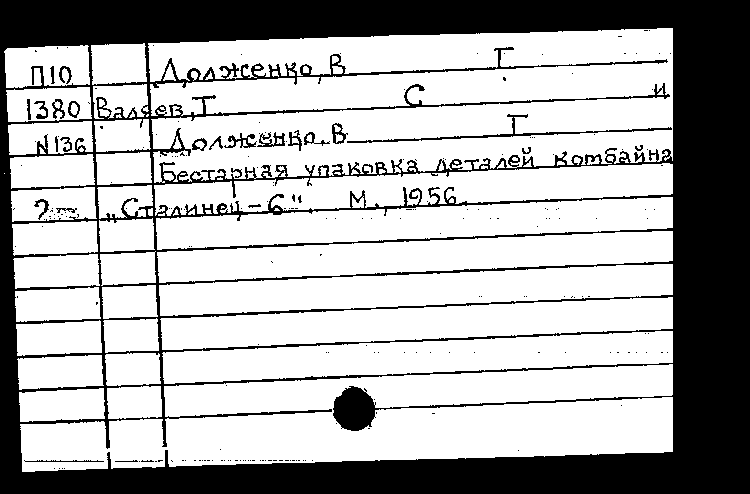 П10 Долженко, В Г
1380 Валяев, Т. С и
N136 Долженко, В Г
Бестарная упаковка деталей комбайна
2 „Сталинец-6". М., 1956.